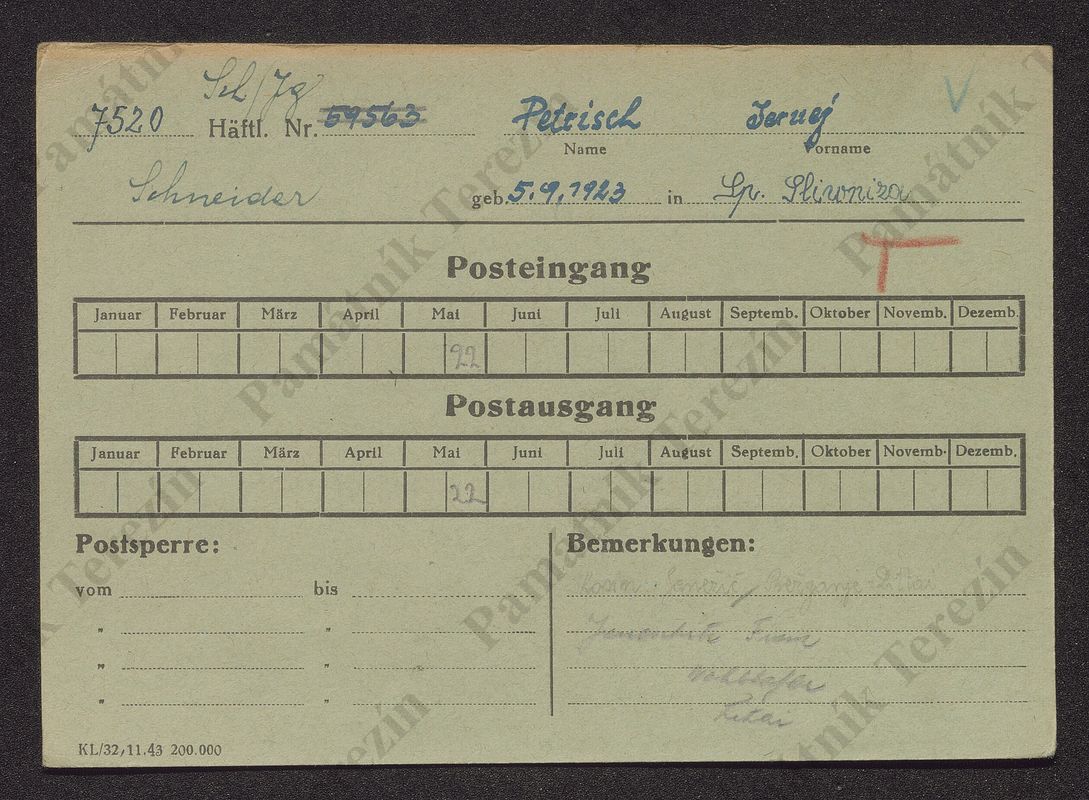 Sch/Jg
7520 Häftl. Nr. 59563 Petrisch Jernej
Name Vorname
Schneider geb. 5.9.1923 in Sp. Sliwniza
Posteingang
Januar Februar März April Mai Juni Juli August Septemb. Oktober Novemb. Dezemb.
22
Postausgang
Januar Februar März April Mai Juni Juli August Septemb. Oktober Novemb. Dezemb.
22
Postsperre: Bemerkungen:
vom bis
" "
" "
" "
Littai
Franz
Littai
KL/32, 11.43 200.000
Památník Terezín